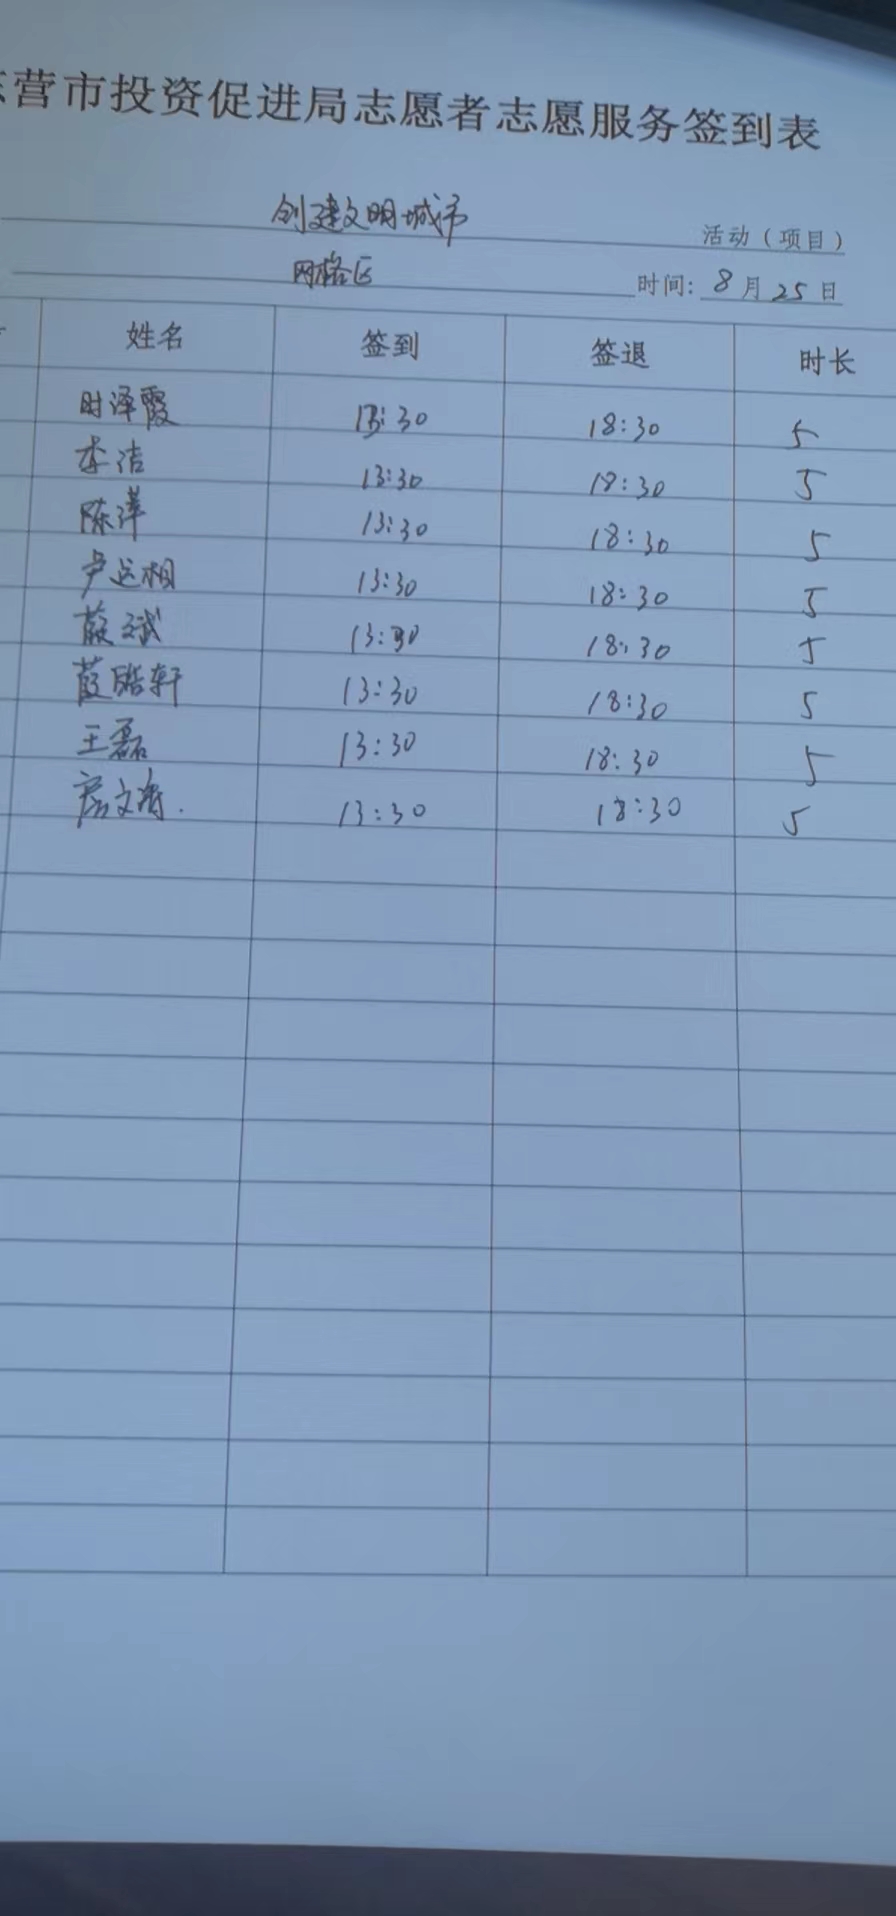 营市投资促进局志愿者志愿服务签到表
创建文明城市 活动（项目）
网格区 时间: 8月25日
姓名 签到 签退 时长
时泽霞 13:30 18:30 5
李洁 13:30 18:30 5
陈萍 13:30 18:30 5
尹运相 13:30 18:30 5
13:30 18:30 5
13:30 18:30 5
王磊 13:30 18:30 5
13:30 18:30 5